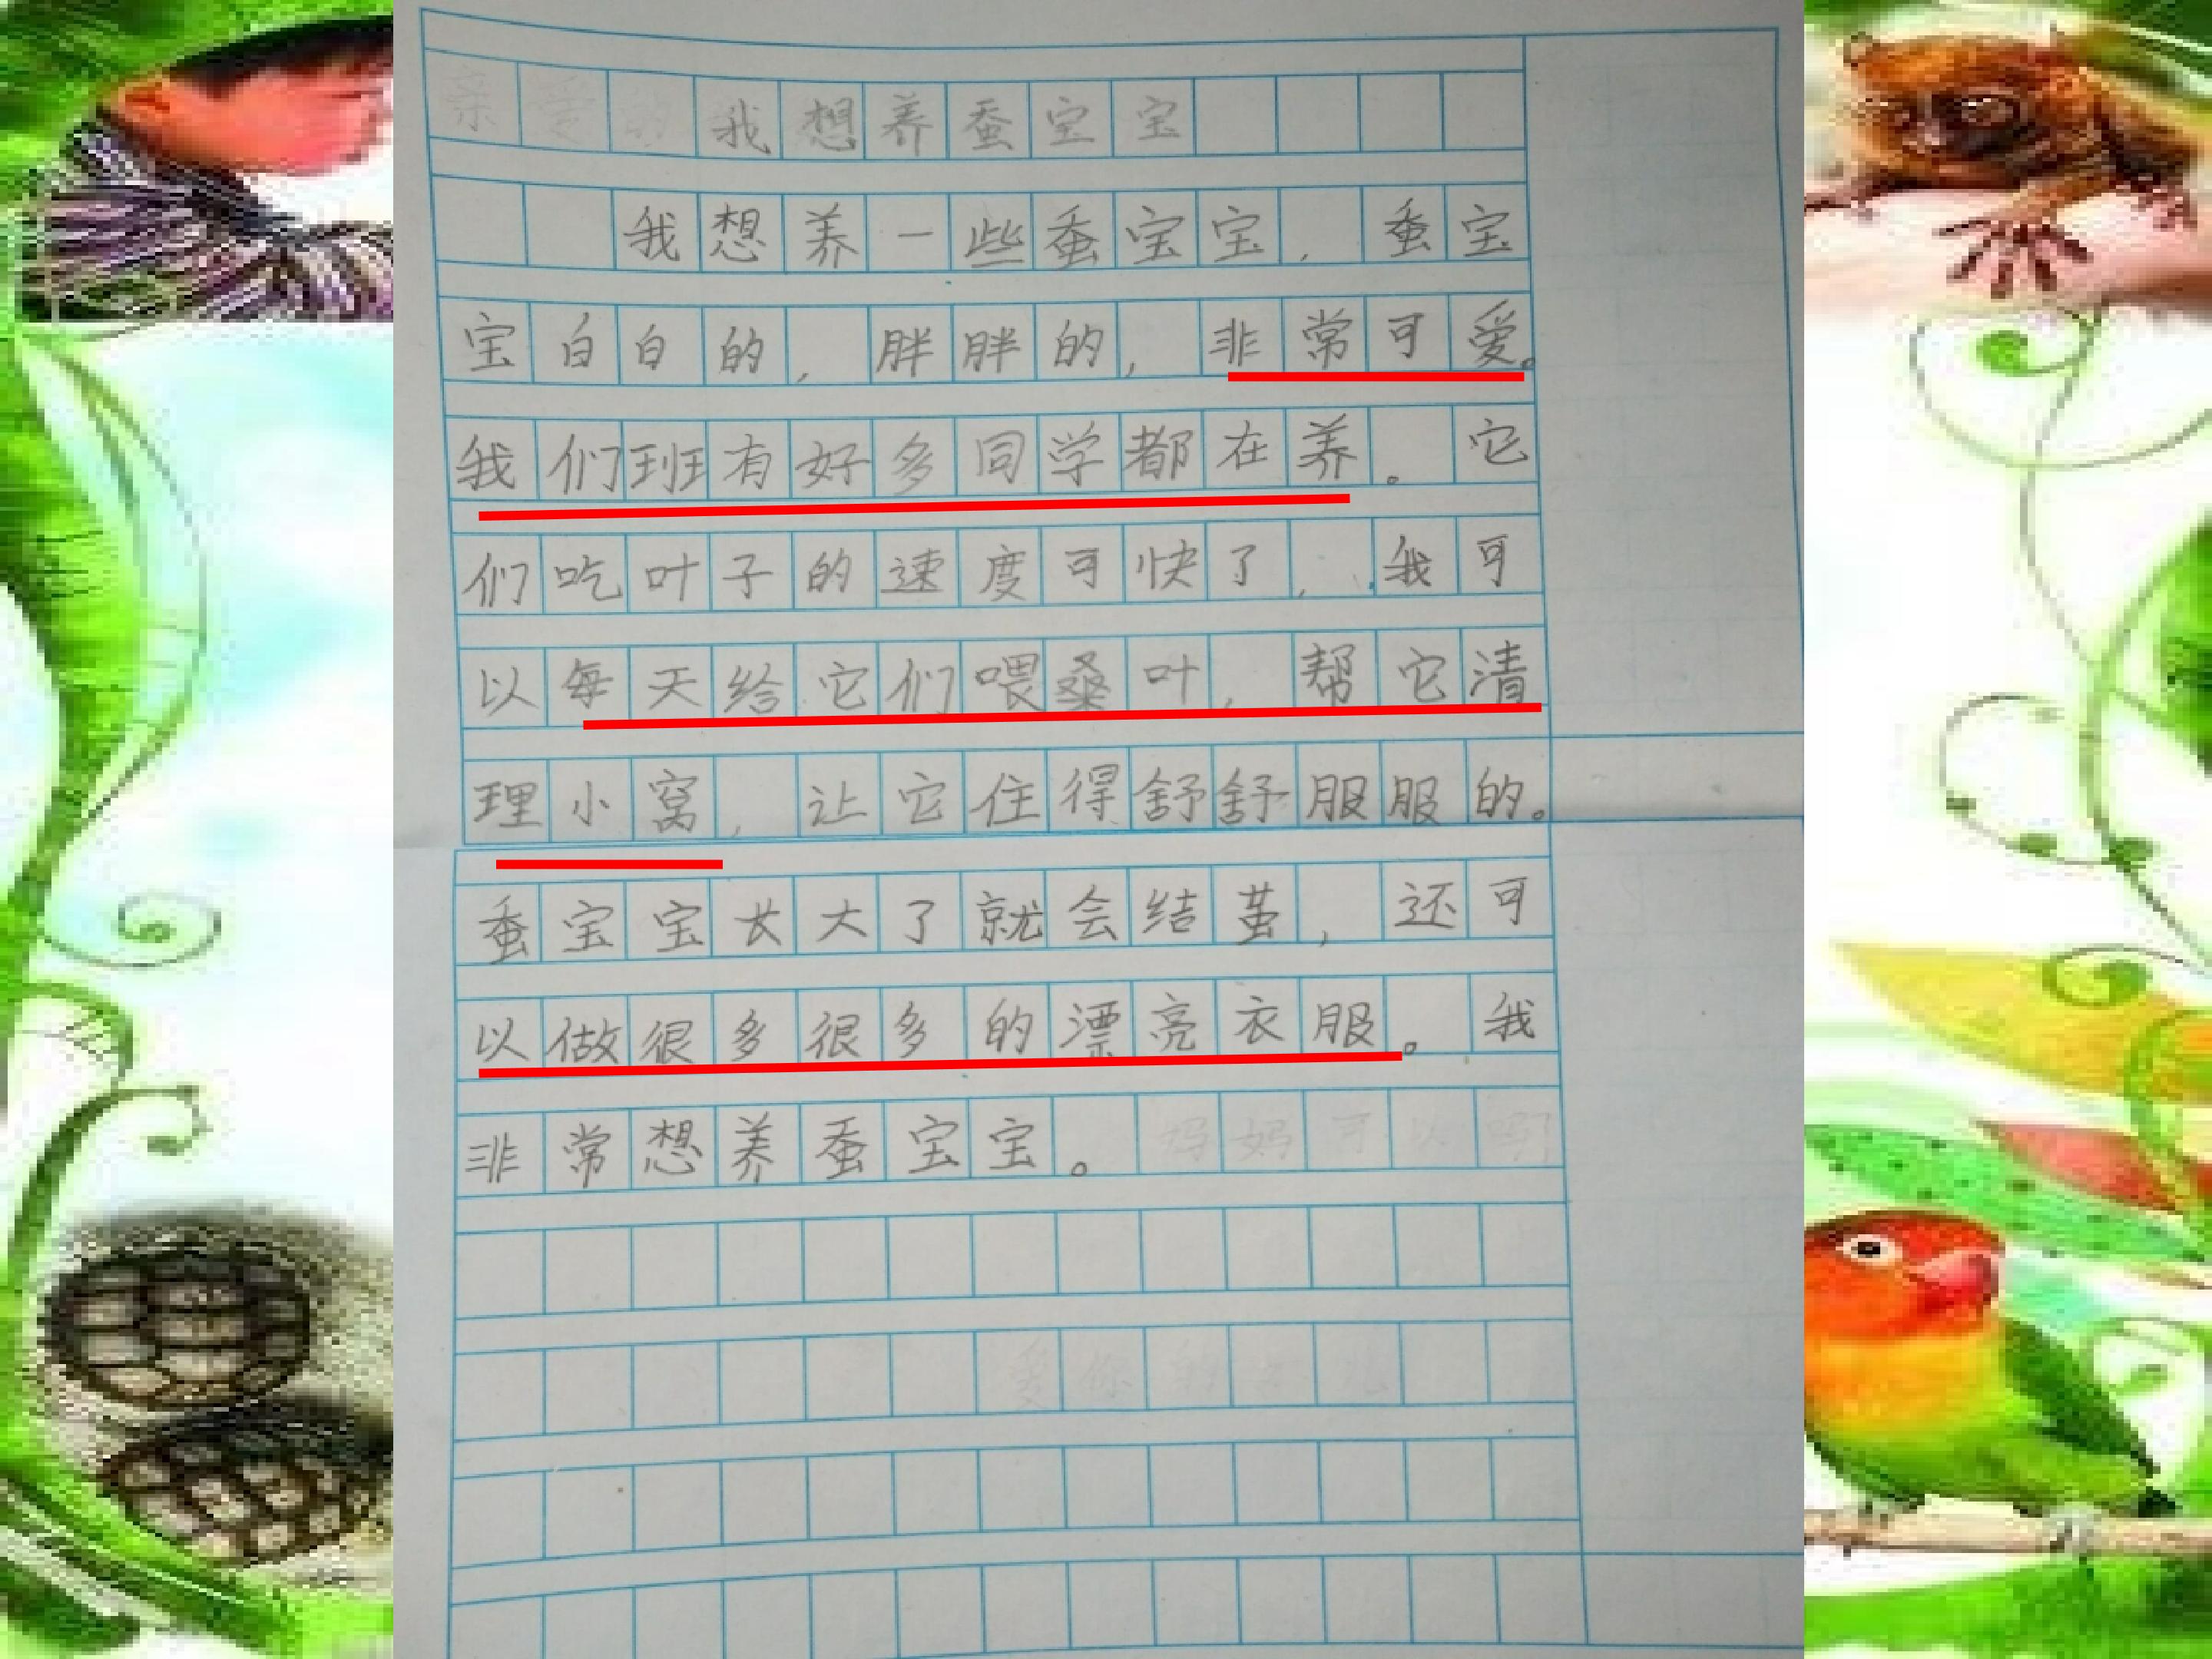 我想养蚕宝宝
我想养一些蚕宝宝，蚕宝
宝白白的，胖胖的，非常可爱。
我们班有好多同学都在养。它
们吃叶子的速度可快了，我可
以每天给它们喂桑叶，帮它清
理小窝，让它住得舒舒服服的。
蚕宝宝长大了就会结茧，还可
以做很多很多的漂亮衣服。我
非常想养蚕宝宝。